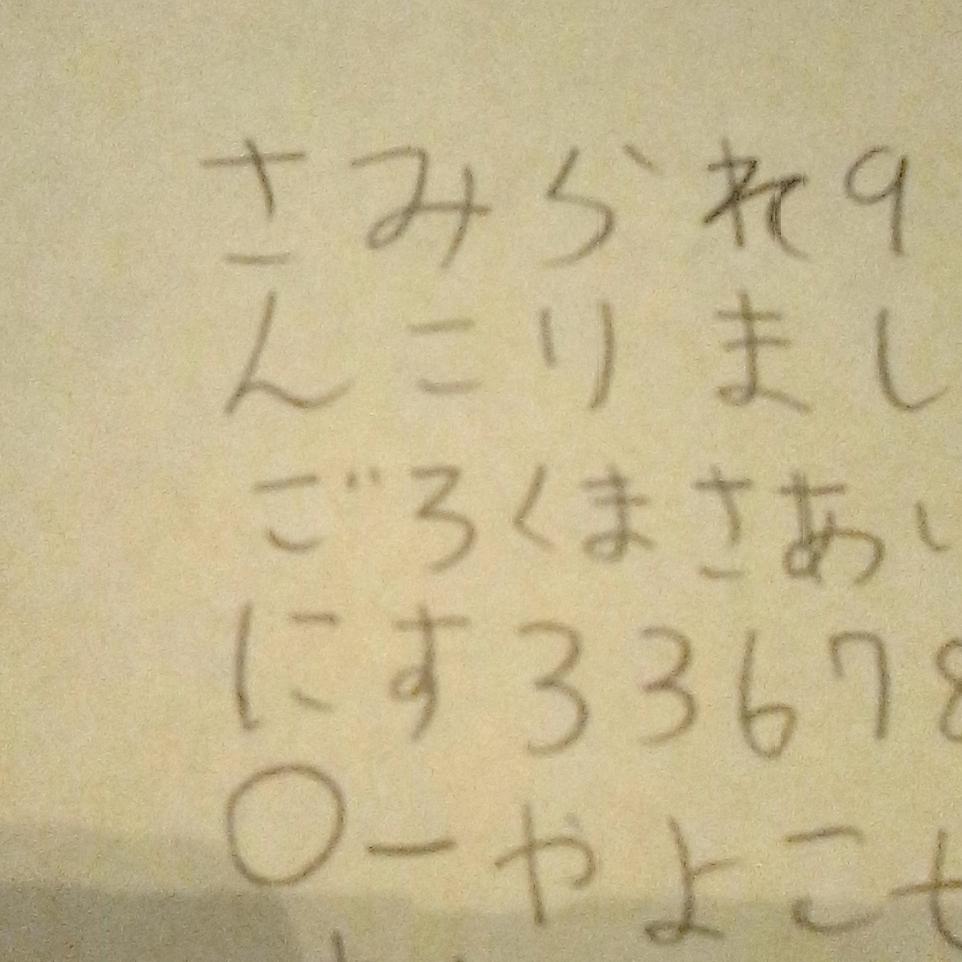 さみられ9
んこりまし
ごろくまさあい
にす33678
〇ーやよこせ